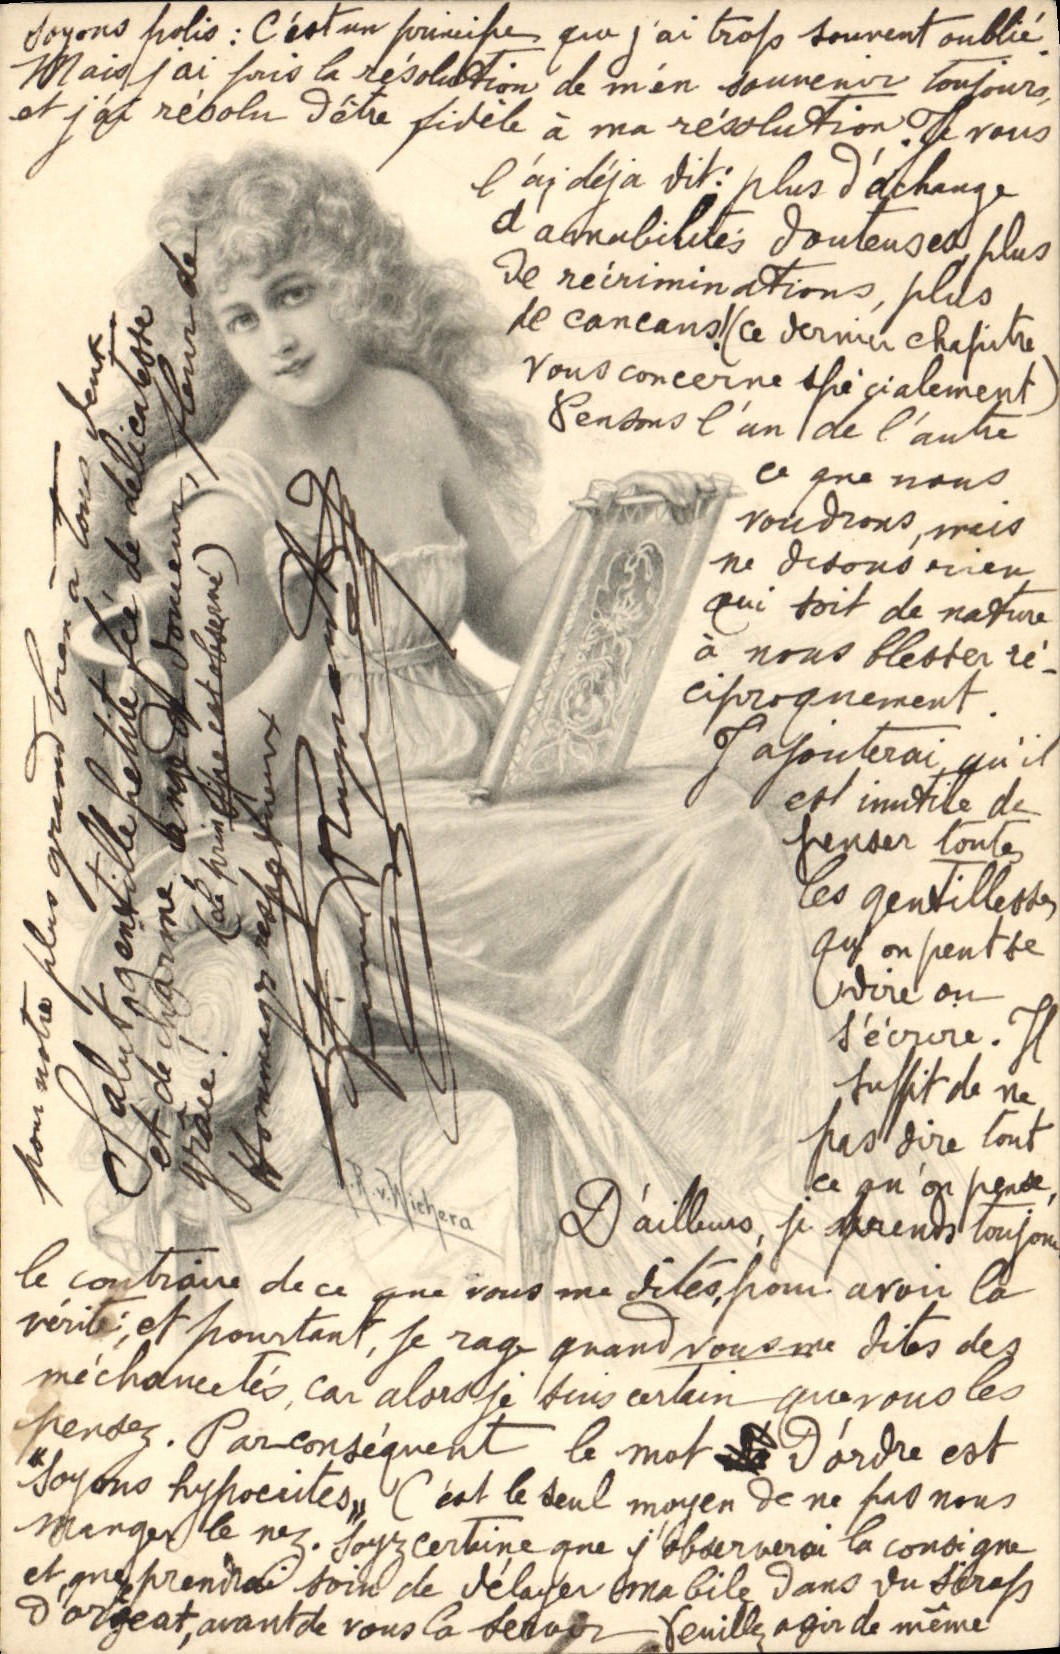 Soyons polis : C'est un principe que j'ai trop souvent oublié.
Mais j'ai pris la résolution de m'en souvenir toujours,
et j'ai résolu d'être fidèle à ma résolution. Je vous
l'ai déja dit : plus d'échange
d'amabilités douteuses, plus
de récriminations, plus
de cancans ! (ce dernier chapitre
vous concerne spécialement)
Pensons l'un de l'autre
ce que nous
voudrons, mais
ne disons rien
qui soit de nature
à nous blesser ré-
ciproquement.
J'ajouterai qu'il
est inutile de
penser toutes
les gentillesses
qu'on peut se
dire ou
s'écrire. Il
suffit de ne
pas dire tout
ce qu'on pense,
D'ailleurs, je prends toujours
le contraire de ce que vous me dites, pour avoir la
vérité ; et pourtant, je rage quand vous me dites des
méchancetés, car alors je suis certain que vous les
pensez. Par conséquent le mot d'ordre est
"Soyons hypocrites" C'est le seul moyen de ne pas nous
manger le nez. Soyez certaine que j'observerai la consigne
et que prendrai soin de délayer ma bile dans du sirop
d'orgeat, avant de vous la servir Veuillez agir de même
pour notre plus grand bien à tous deux
Salut gentille petite fée de délicatesse
et de charme ange de douceur, fleur de
grâce ! (le principe est observé)
Hommages respectueux
R. v. Wichera